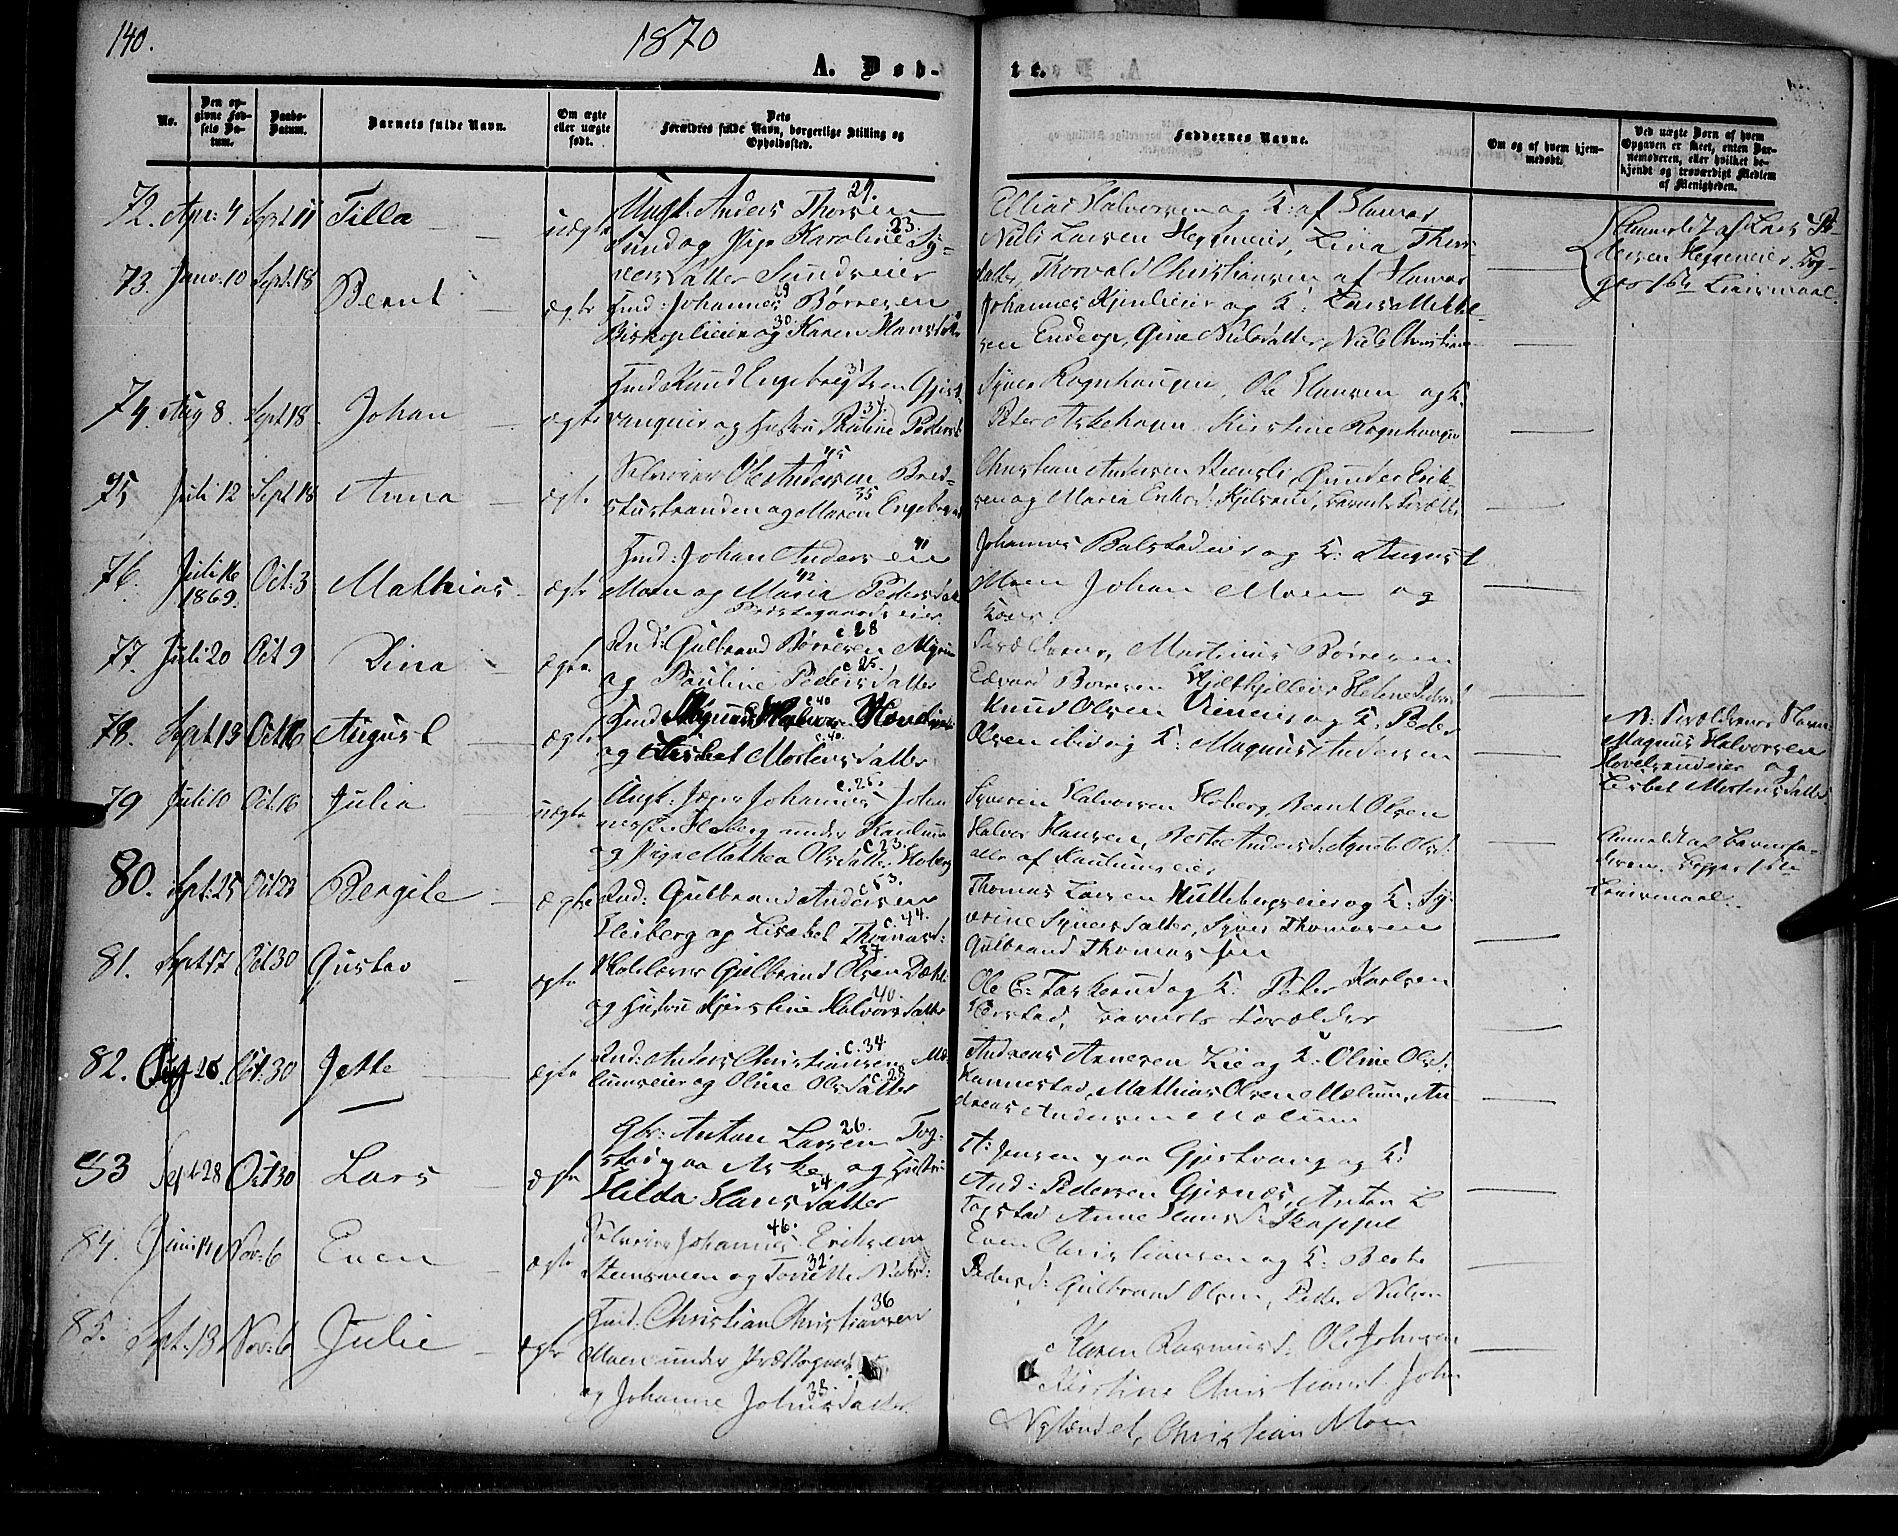 140.
1870
A. Døb-
te.
No.
Den op-
givne Fød-
sels Da-
tum.
Daabs-
Datum.
Barnets fulde Navn.
Om ægte
eller uægte
født.
Dets
Forældres fulde Navn, borgerlige Stilling og
Opholdssted.
Faddernes Navne.
Om og af hvem hjem-
medøbt.
Ved uægte Børn af hvem
Opgaven er skeet, enten Bar-
nemoderen, eller hvilket be-
kjendt og troværdigt Medlem
af Menigheden.
72. Apr: 4 Sept 11 Tilla uægte Ungk: Anders Thorsen 29.
Sund og Pige Karoline Sy- 23.
versdatter Sundseier
Elias Halvorsen og K: af Hamar
Niels Larsen Heggeneier, Lina Thors-
datter, Thorvald Christiansen af Hamar
Anmeldt af Lars
Heggeneier.
Leiermaal.
73. Janv: 10 Sept: 18 Bernt ægte Ind: Johannes Børresen
Biskoplieeier og Karen Hansdatter 30
Johannes og K: Lars Mikkel-
sen Enderop, Gine Nielsdatter, Niels Christians
74. Aug 8. Sept 18. Johan ægte Ind: Knud Engebregtsen Gjist- 31
vangeier og Hustru Pauline Pedersd 34.
Syver Rognhaugen, Ole Hansen og K.
Peter Askehagen Kirstine Rognhaugen
75 Juli 12 Sept 18 Anna ægte Selveier Ole Andersen 45
og Maren Engebrets 35
Christian Andersen Stensli, Gunder Erik-
sen og Maria Eriksd. Kjelsrud, Barnets Forældre
76. Juli 16
1869. Oct: 3 Mathias ægte Ind: Johan Andersen 41
Moen og Maria Pedersdatter 42
Præstegaardseier
Johannes Balstadeier og K: August
Moen Johan Moen og
Kone
77. Juli 20 Oct 9 Dina ægte Ind: Gulbrand Børresen c 28
og Pauline Pedersdatter c 25.
Forældrene, Martinus Børresen
Edvard Børresen Helene Peders
78. Sept 13 Oct 16 August ægte Ind: Magnus Halvorsen c 40
og Lisbet Mortensdatter c. 40.
Knud Olsen Vieneier og K. Peder
Olsen Lie og K: Magnus Andersen
N: Forældrenes Navne
Magnus Halvorsen
Hovelsrudeier og
Lisbet Mortensdatter
79 Juli 10 Oct 16 Julia uægte Ungk: Johannes Johan c. 25.
nessen Hoberg under Kaulum
og Pige Mathea Olsdatter Hoberg c 23.
Syverin Halvorsen Hoberg, Bernt Olsen
Halvor Hansen, Berte Andersd: Agnete Olsd:
alle af Kaulumseier
Anmeldt af Barnefa-
deren. Begges 1ste
Leiermaal.
80. Sept: 25 Oct 23 Bergite ægte Ind: Gulbrand Andersen c 53.
Heiberg og Lisabet Thomasd: c. 44.
Thomas Larsen Hullebugseier og K: Sy-
verine Syversdatter, Syver Thomasen
Gulbrand Thomassen
81. Sept 17 Oct 30 Gustav ægte Skolelærer Gulbrand Olsen 37
og Hustru Kjerstine Halvorsdatter 40.
Ole C: Taskerud og K. Peter Karlsen
Barnets Forældre
82. Aug 26. Oct. 30 Jette ægte Ind: Anders Christiansen Mæ- c. 34
lumseier og Oline Olsdatter c. 28
Andreas Arnesen Lie og K: Oline Olsd:
Kannestad, Mathias Olsen Mælum, An-
dreas Andersen Mælum
83 Sept 28 Oct 30 Lars ægte Gbr: Anton Larsen Tog- 26.
stad paa Aske, og Hustru
Hilda Hansdatter 24
A: Jensen paa Gjistvang og K:
And: Pedersen Gjisnæs, Anton L
Togstad Anne Hansd: Skappel
84. Juni 14 Nov: 6 Even ægte Selveier Johannes Eriksen 46.
Stensveen og Tonette Nielsd: 32
Even Christiansen og K. Berte
Pedersd: Gulbrand Olsen, Peder Nielsen
85. Sept: 13 Nov: 6 Julie ægte Ind: Christian Christiansen 36
Moen under Præstegaard
og Johanne Johnsdatter 38.
Karen Rasmusd. Ole Johnsen
Kirstine Christiansd. John
Nylændet, Christian Moen